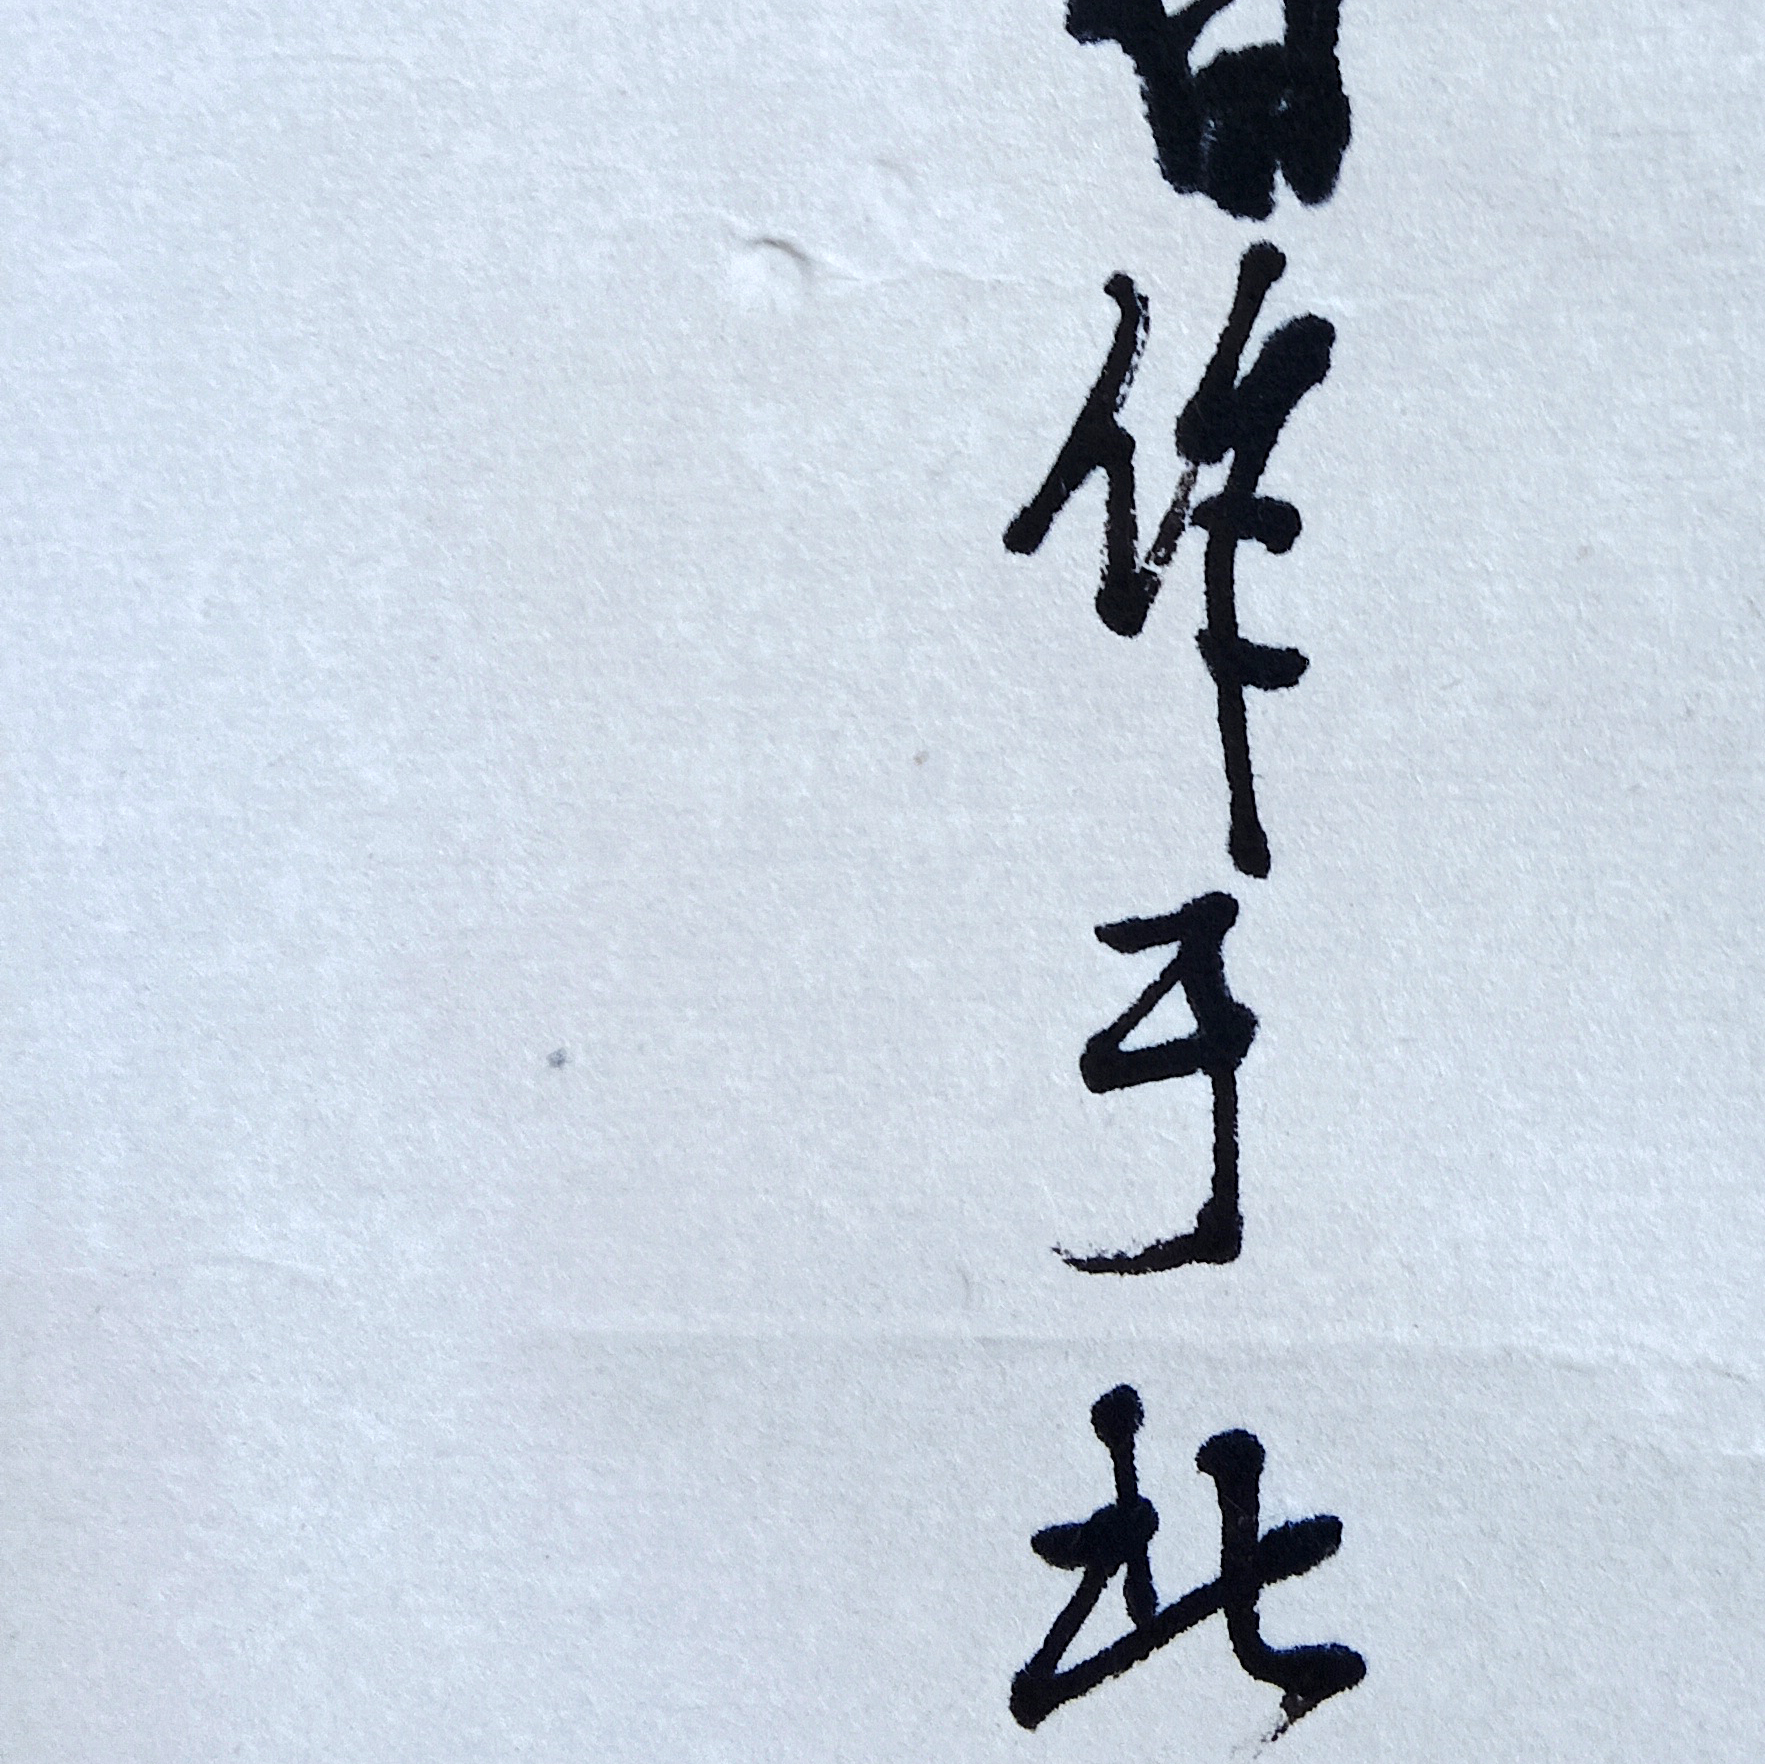 作于北